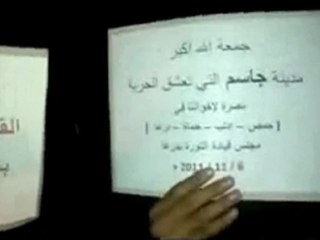 جمعة الله أكبر
مدينة جاسم التي تعشق الحرية
نصرة لإخواننا في
[ حمص – ادلب – حماة – درعا ]
مجلس قيادة الثورة بدرعا
6 / 11 / 2011 م
الق